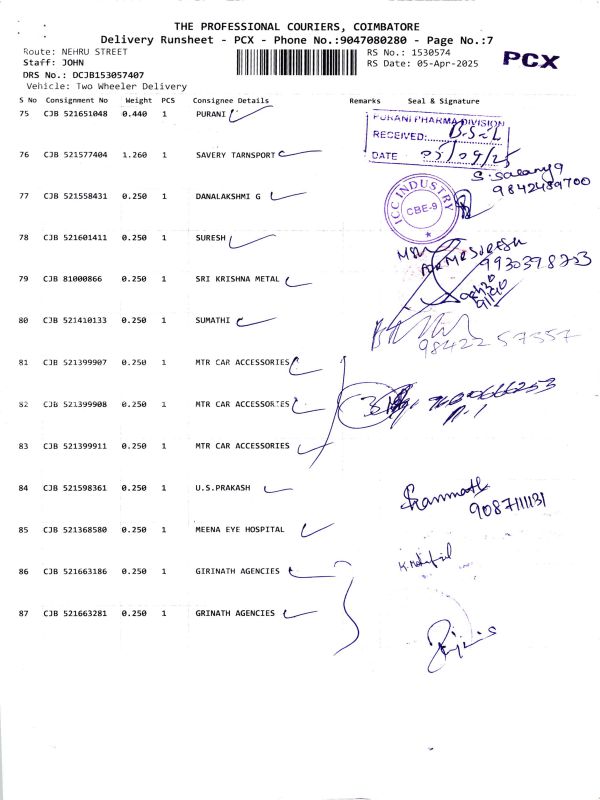 THE PROFESSIONAL COURIERS, COIMBATORE
Delivery Runsheet - PCX - Phone No.:9047080280 - Page No.:7
Route: NEHRU STREET
RS No.: 1530574
PCX
Staff: JOHN
RS Date: 05-Apr-2025
DRS No.: DCJB153057407
Vehicle: Two Wheeler Delivery
S No Consignment No Weight PCS Consignee Details Remarks Seal & Signature
75 CJB 521651048 0.440 1 PURANI
PURANI PHARMA DIVISION
RECEIVED:
DATE
76 CJB 521577404 1.260 1 SAVERY TARNSPORT
S. Saranya
9842489700
77 CJB 521558431 0.250 1 DANALAKSHMI G
ICC INDUSTRY
CBE-9
78 CJB 521601411 0.250 1 SURESH
79 CJB 81000866 0.250 1 SRI KRISHNA METAL
80 CJB 521410133 0.250 1 SUMATHI
98422 57557
81 CJB 521399907 0.250 1 MTR CAR ACCESSORIES
82 CJB 521399908 0.250 1 MTR CAR ACCESSORIES
83 CJB 521399911 0.250 1 MTR CAR ACCESSORIES
84 CJB 521598361 0.250 1 U.S.PRAKASH
9087111131
85 CJB 521368580 0.250 1 MEENA EYE HOSPITAL
86 CJB 521663186 0.250 1 GIRINATH AGENCIES
87 CJB 521663281 0.250 1 GRINATH AGENCIES